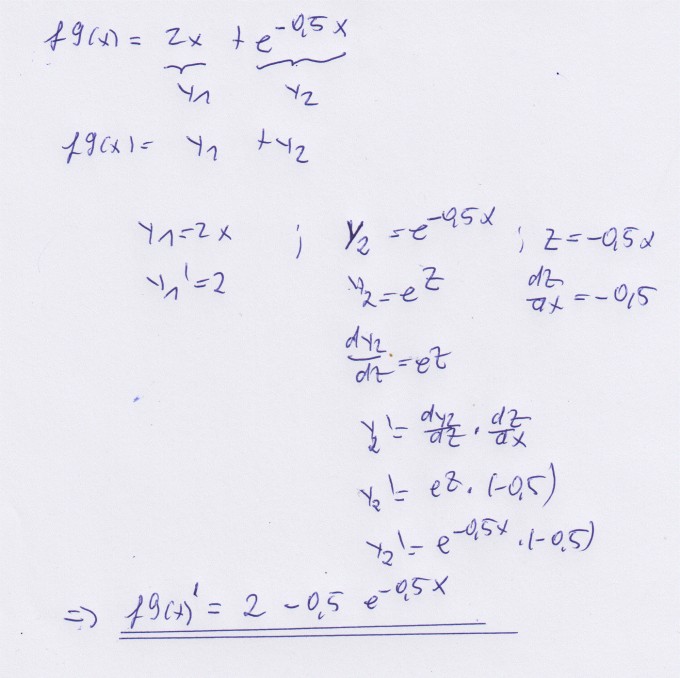 f9(x) = 2x + e^-0,5x
y1 y2
f9(x) = y1 + y2
y1 = 2x ; y2 = e^-0,5x ; z = -0,5x
y1' = 2 y2 = e^z dz/dx = -0,5
dy2/dz = e^z
y2' = dy2/dz · dz/dx
y2' = e^z · (-0,5)
y2' = e^-0,5x · (-0,5)
=> f9(x)' = 2 - 0,5 e^-0,5x